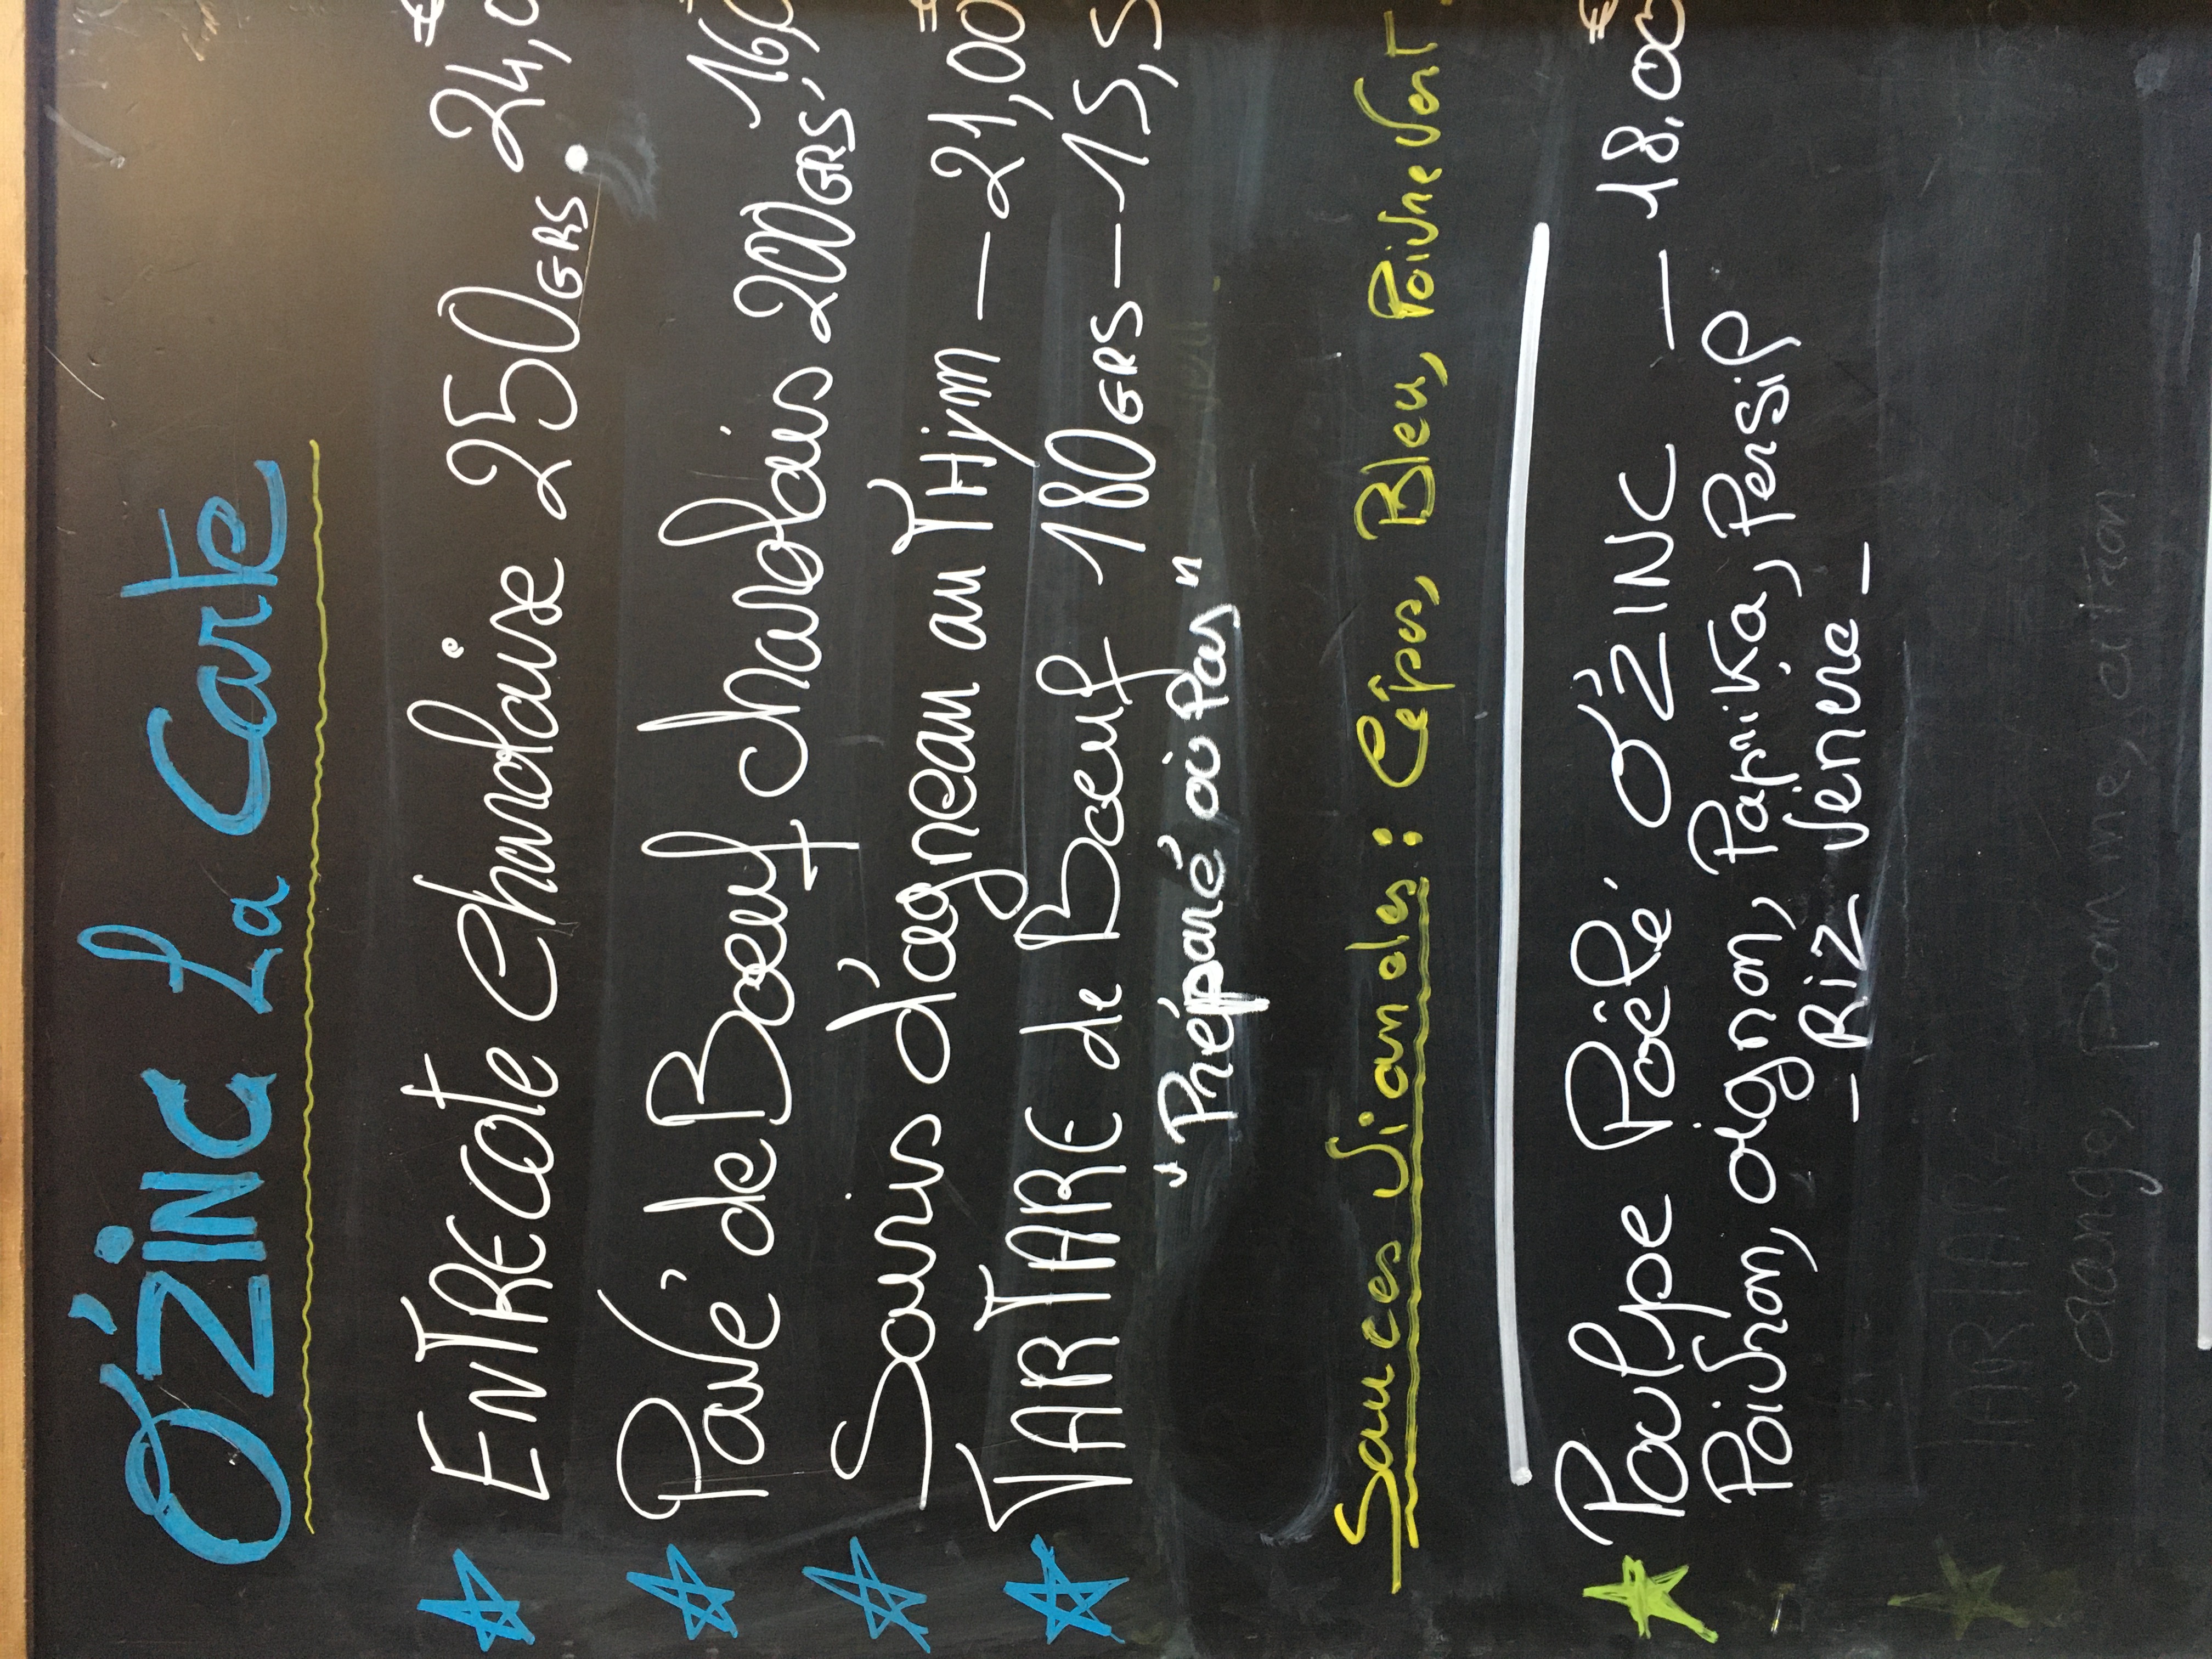 O'ZINC La Carte
ENTRECOTE Charolaise 250GRS. 24,0
Pavé de Boeuf charolais 200GRS, 16,0
Souris d'agneau au THym — 21,00
TARTARE de Boeuf 180GRS — 15,5
"Préparé où Pas"
Sauces Viandes : Cépes, Bleu, Poivre Vert.
Poulpe Poêlé O'ZINC — 18,00€
Poivron, oignon, Paprika, Persil
- Riz Venere -
orange, pomme,